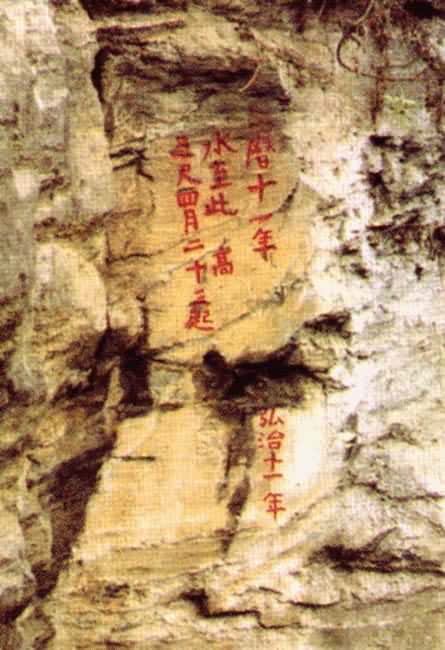 曆十一年
水至此 高
三尺四月二十三起
弘治十一年